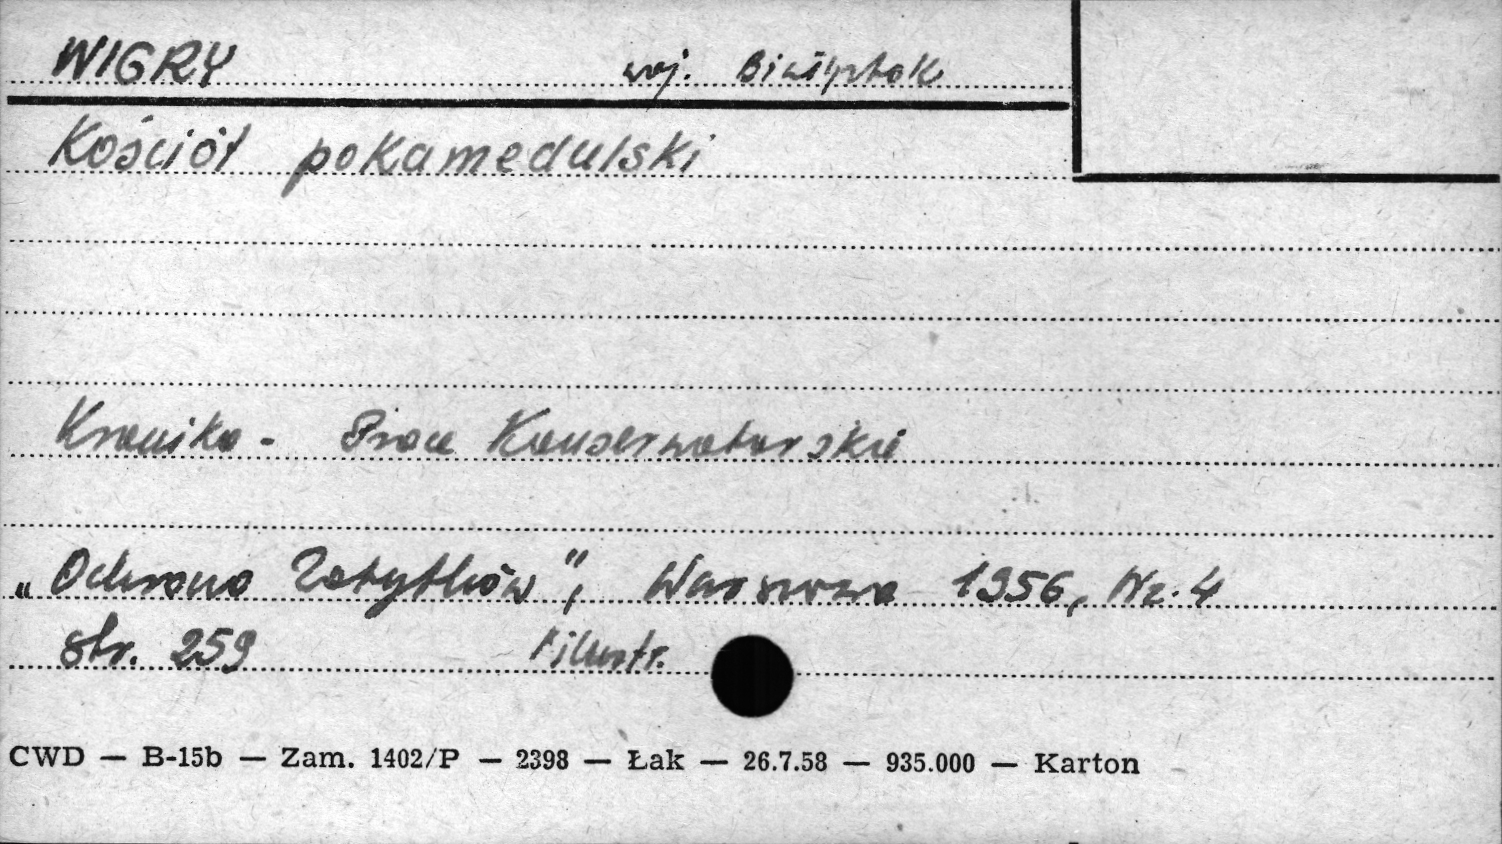 WIGRY woj. Białystok
Kościół pokamedulski
Kronika - Prace Konserwatorskie
„Ochrona Zabytków", Warszawa 1956, Nr. 4
str. 259 1 ilustr.
CWD — B-15b — Zam. 1402/P — 2398 — Łak — 26.7.58 — 935.000 — Karton